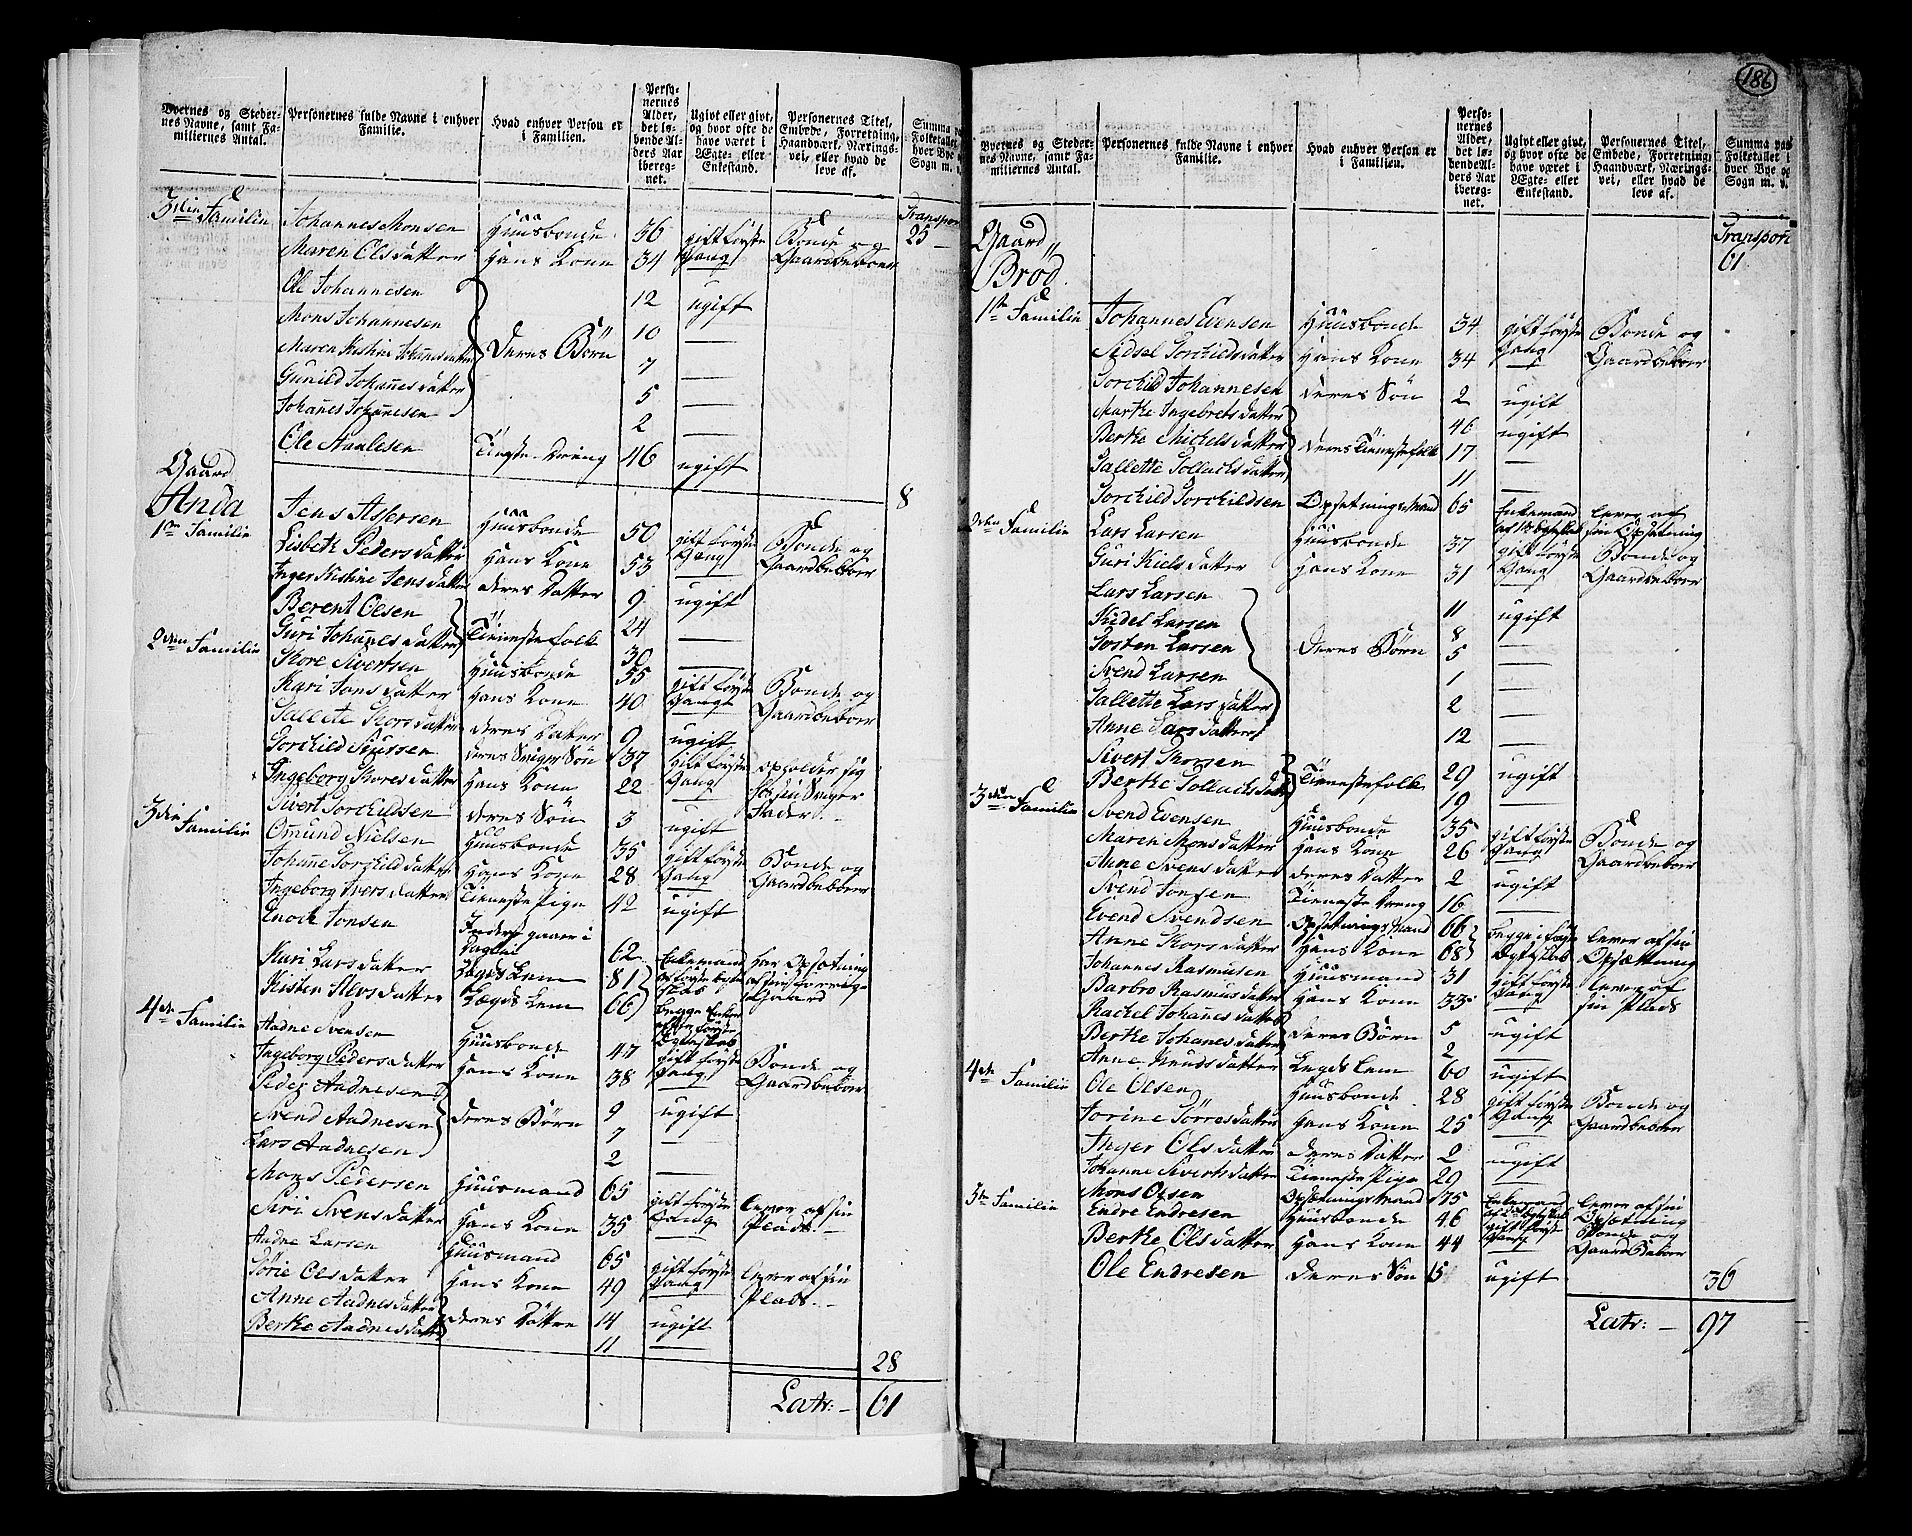 186
Byernes og Steder-
nes Navne, samt Fa-
miliernes Antal.
Personernes fulde Navne i enhver
Familie.
Hvad enhver Person er
i Familien.
Perso-
nernes
Alder,
det lø-
bende Al-
ders Aar
iberegnet.
Ugivt eller givt,
og hvor ofte de
have været i
Ægte- eller
Enkestand.
Personernes Titel,
Embede, Forretning,
Haandværk, Nærings-
vei, eller hvad de
leve af.
Summa paa
Folketallet
hver Bye
Sogn m. v.
Transport
25
3die Familie
Johannes Monsen Huusbonde 36 gift første Gang Bonde og Gaardbeboer
Maren Olsdatter Hans Kone 34
Ole Johannesen 12 ugift
Mons Johannesen 10 —
Maren Kistine Johannesdatter Deres Børn 7 —
Gunild Johannesdatter 5 —
Johannes Johannesen 2 —
Ole Aanlesen Tieneste Dreng 46 ugift
8
Gaard
Anda
1te Familie
Jens Assersen Huusbonde 50 gift første Gang Bonde og Gaardbeboer
Lisbeth Pedersdatter Hans Kone 53
Inger Kistine Jensdatter deres Datter 9 ugift
Berent Olsen 24 —
Guri Johannesdatter Tienestefolk 30 —
2den Familie
Thore Sivertsen Huusbonde 55 gift første Gang Bonde og Gaardbeboer
Kari Jonsdatter Hans Kone 40
Tallette Thorsdatter deres Datter 9 ugift
Torchild Siursen deres Sviger Søn 37 gift første Gang opholder sig hos sin Sviger Fader
Ingeborg Thoresdatter Hans Kone 22
Sivert Torchildsen deres Søn 3 ugift
3die Familie
Omund Nielsen Huusbonde 35 gift første Gang Bonde og Gaardbeboer
Johanne Torchildsdatter Hans Kone 28
Ingeborg Iversdatter Tieneste Pige 42 ugift
Enoch Jonsen Inderst gaaer i Dagleie 62 Enkemand
Kari Larsdatter Lægds Lem 81
Kisten Stersdatter Lægds Lem 66
4de Familie
Aadne Svensen Huusbonde 47 gift første Gang Bonde og Gaardbeboer
Ingeborg Pedersdatter Hans Kone 38
Peder Aadnesen 9 ugift
Svend Aadnesen deres Børn 7 —
Lars Aadnesen 2 —
Mons Pedersen Huusmand 65 gift første Gang lever af sin Plads
Siri Svensdatter Hans Kone 35
Aadne Larsen Huusmand 65 gift første Gang lever af sin Plads
Tørie Olsdatter Hans Kone 49
Anne Aadnesdatter deres Døttre 14 ugift
Berthe Aadnesdatter 11 —
28
Latr: — 61
Byernes og Steder-
nes Navne, samt Fa-
miliernes Antal.
Personernes fulde Navne i enhver
Familie.
Hvad enhver Person er
i Familien.
Perso-
nernes
Alder,
det lø-
bende Al-
ders Aar
iberegnet.
Ugivt eller givt,
og hvor ofte de
have været i
Ægte- eller
Enkestand.
Personernes Titel,
Embede, Forretning,
Haandværk, Nærings-
vei, eller hvad de
leve af.
Summa paa
Folketallet i
hver Bye og
Sogn m. v.
Transport
61
Gaard
Brød
1te Familie
Johannes Evensen Huusbonde 34 gift første Gang Bonde og Gaardbeboer
Sidsel Torchildsdatter Hans Kone 34
Torchild Johannesen deres Søn 2 ugift
Marthe Ingebretsdatter 46 ugift
Berthe Michelsdatter deres Tienestefolk 17 —
Tallette Tollachsdatter 11 —
Torchild Torchildsen Opsetnings Mand 65 Enkemand lever af sin Opsætning
2den Familie
Lars Larsen Huusbonde 37 gift første Gang Bonde og Gaardbeboer
Guri Kielsdatter Hans Kone 31
Lars Larsen 11 ugift
Kidel Larsen 8 —
Tosten Larsen deres Børn 5 —
Svend Larsen 1 —
Tallette Larsdatter 2 —
Anne Larsdatter 12 —
Sivert Thorsen Tienestefolk 29 ugift
Berthe Tollachsdatter 19 —
3die Familie
Svend Evensen Huusbonde 35 gift første Gang Bonde og Gaardbeboer
Maren Monsdatter Hans Kone 26
Anne Svensdatter deres Datter 2 ugift
Svend Jonsen Tieneste Dreng 16 —
Evend Svendsen Opsetnings Mand 66 begge i første Egteskab lever af sin Opsættning
Anne Thorsdatter Hans Kone 68
Johannes Rasmusen Huusmand 31 gift første Gang lever af sin Plads
Barbro Rasmusdatter Hans Kone 33
Rachel Johannesdatter deres Børn 5 ugift
Berthe Johanesdatter 2 —
Anne Knudsdatter Legds Lem 60 ugift
4de Familie
Ole Olsen Huusbonde 28 gift første Gang Bonde og Gaardbeboer
Torine Tørresdatter Hans Kone 25
Inger Olsdatter Deres Datter 2 ugift
Johanne Sivertsdatter Tieneste Pige 29 —
Mons Olsen Opsætnings Mand 75 Enkemand lever af sin Opsætning
5te Familie
Endre Endresen Huusbonde 46 gift første Gang Bonde og Gaardbeboer
Berthe Olsdatter Hans Kone 44
Ole Endresen deres Søn 15 ugift
36
Latr: — 97